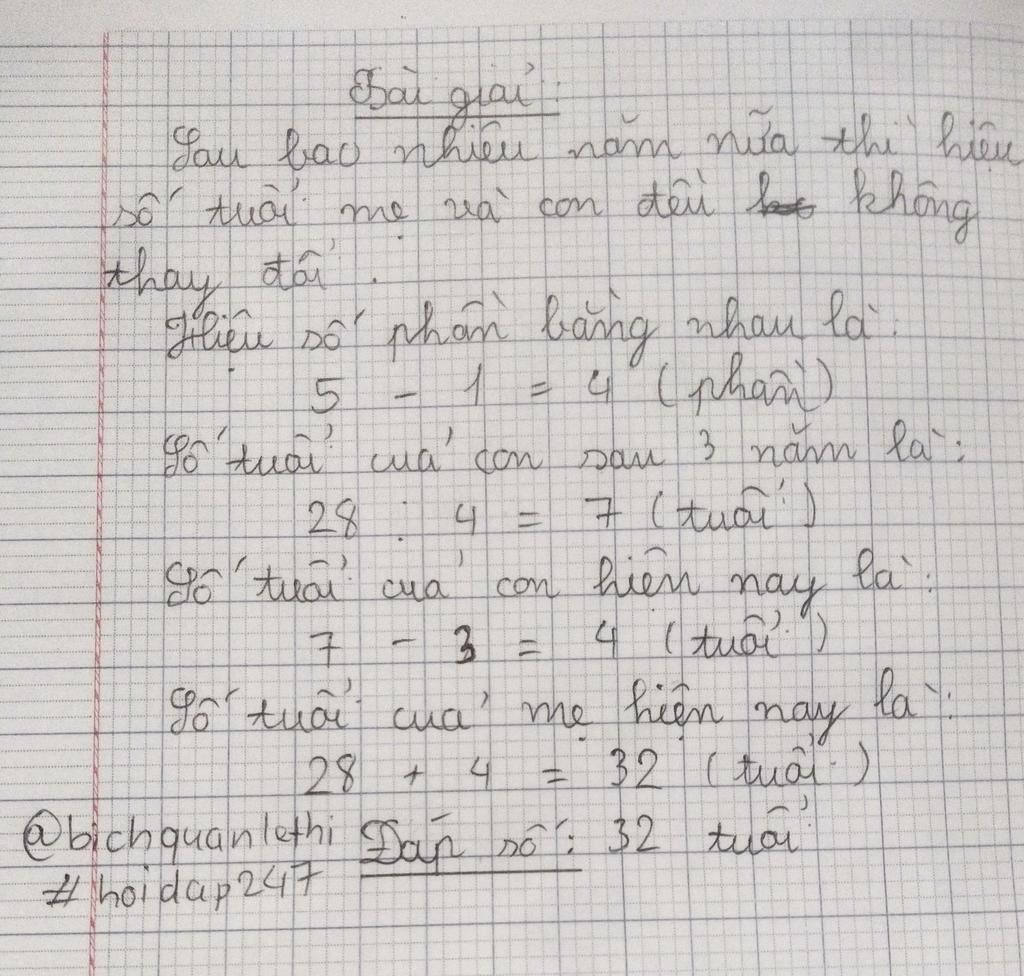 Bài giải:
Sau bao nhiêu năm nữa thì hiệu
số tuổi mẹ và con đều không
thay đổi.
Hiệu số phần bằng nhau là:
5 - 1 = 4 (phần)
Số tuổi của con sau 3 năm là:
28 : 4 = 7 (tuổi)
Số tuổi của con hiện nay là:
7 - 3 = 4 (tuổi)
Số tuổi của mẹ hiện nay là:
28 + 4 = 32 (tuổi)
@bichquanlethi Đáp số: 32 tuổi
# hoidap247